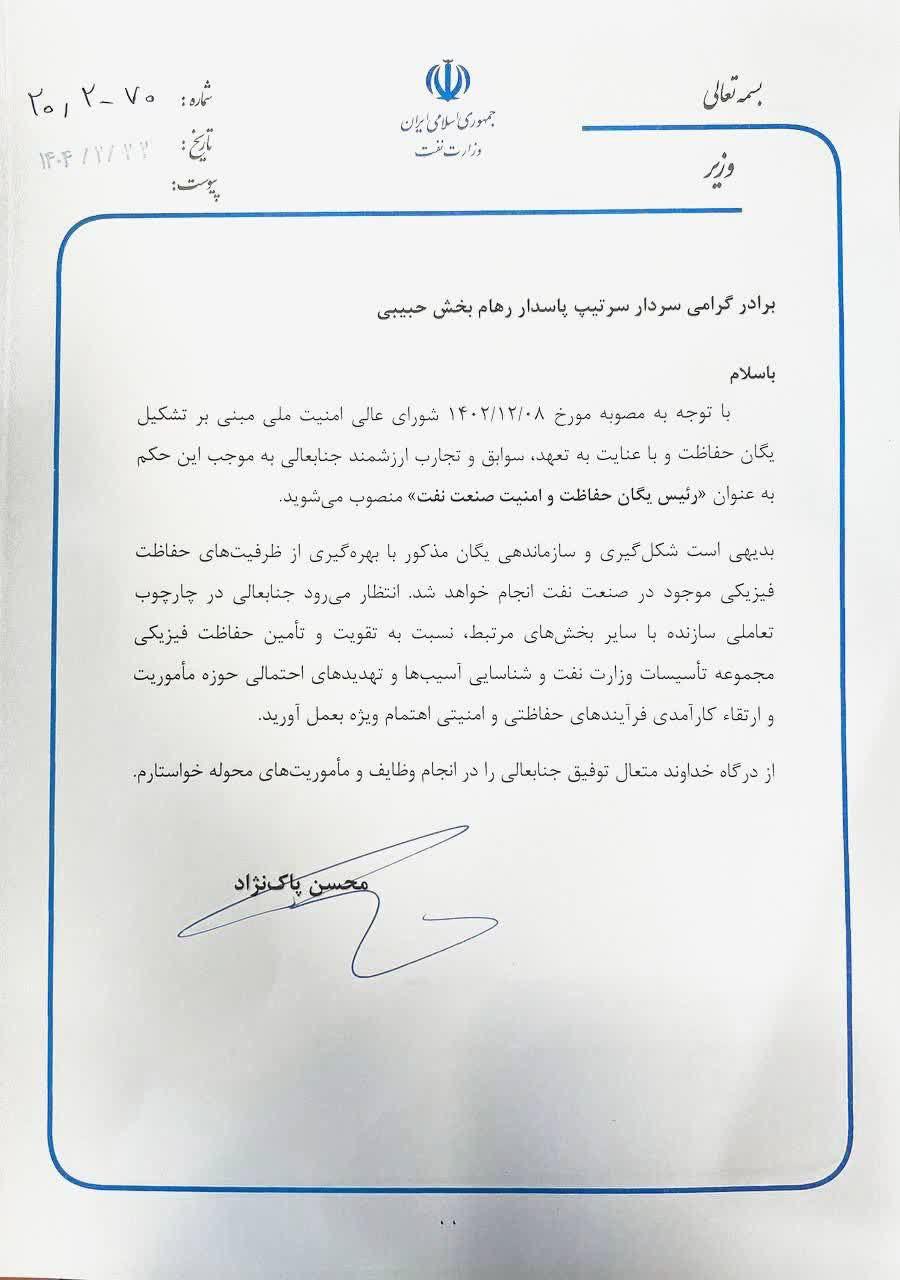 بسمه تعالی
جمهوری اسلامی ایران
وزارت نفت
وزیر
شماره: ۲۰/۲-۷۰
تاریخ:
پیوست:
برادر گرامی سردار سرتیپ پاسدار رهام بخش حبیبی
باسلام
با توجه به مصوبه مورخ ۱۴۰۲/۱۲/۰۸ شورای عالی امنیت ملی مبنی بر تشکیل
یگان حفاظت و با عنایت به تعهد، سوابق و تجارب ارزشمند جنابعالی به موجب این حکم
به عنوان «رئیس یگان حفاظت و امنیت صنعت نفت» منصوب می‌شوید.
بدیهی است شکل‌گیری و سازماندهی یگان مذکور با بهره‌گیری از ظرفیت‌های حفاظت
فیزیکی موجود در صنعت نفت انجام خواهد شد. انتظار می‌رود جنابعالی در چارچوب
تعاملی سازنده با سایر بخش‌های مرتبط، نسبت به تقویت و تأمین حفاظت فیزیکی
مجموعه تأسیسات وزارت نفت و شناسایی آسیب‌ها و تهدیدهای احتمالی حوزه مأموریت
و ارتقاء کارآمدی فرآیندهای حفاظتی و امنیتی اهتمام ویژه بعمل آورید.
از درگاه خداوند متعال توفیق جنابعالی را در انجام وظایف و مأموریت‌های محوله خواستارم.
محسن پاک‌نژاد